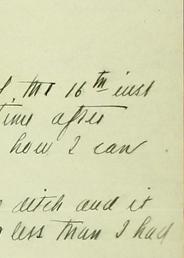 the 16th inst
time after
how I can
ditch and it
less than I had